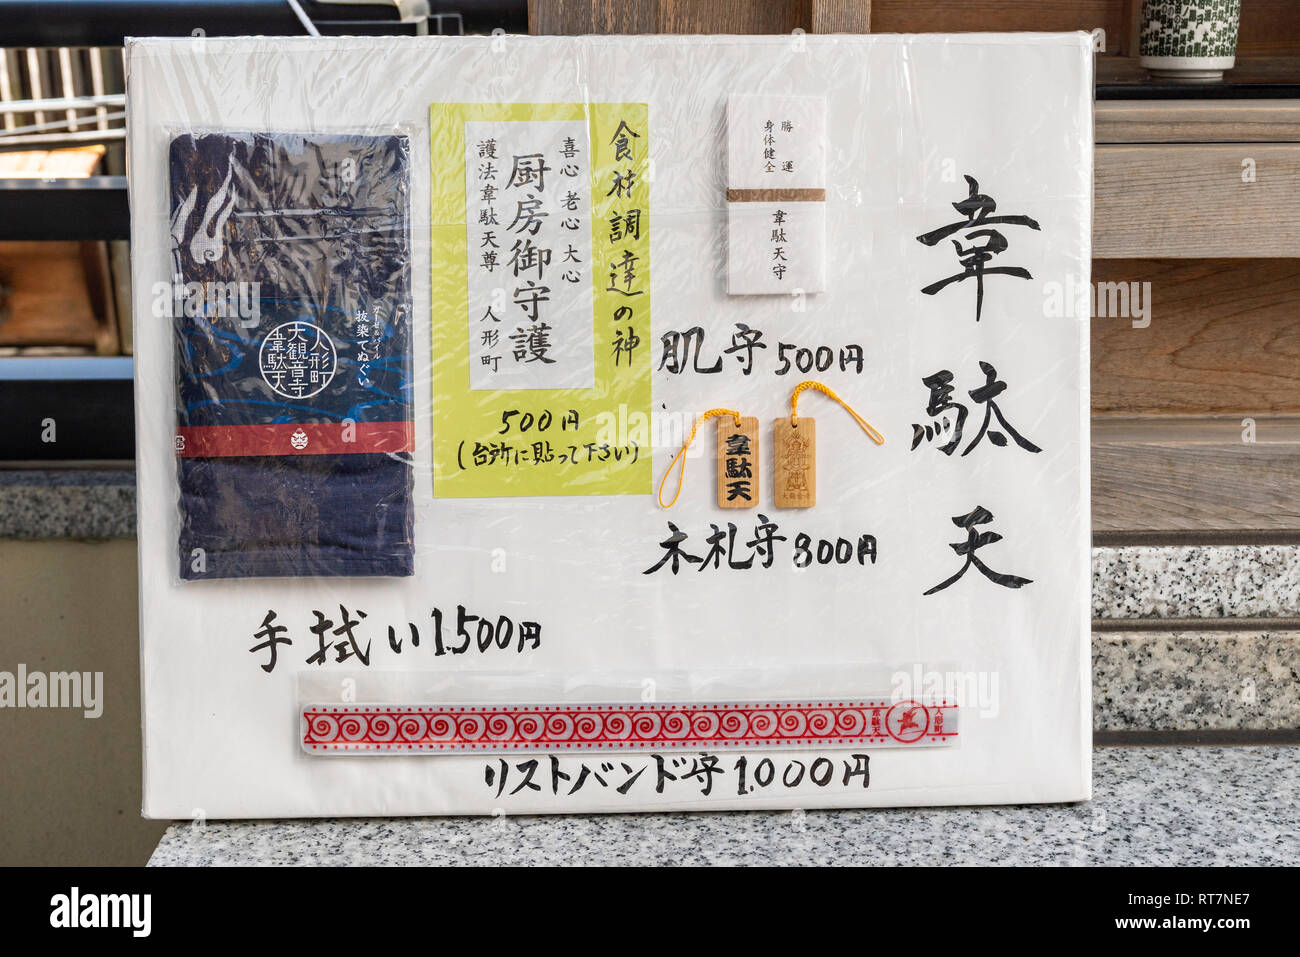 韋駄天
勝運
身体健全
韋駄天守
肌守500円
韋駄天
木札守800円
食材調達の神
喜心 老心 大心
厨房御守護
護法韋駄天尊 人形町
500円
(台所に貼って下さい)
ガーゼ&パイル
抜染てぬぐい
人形町
大観音寺
韋駄天
手拭い1.500円
人形町
韋駄天
リストバンド守1.000円
alamy
alamy
Image ID: RT7NE7
www.alamy.com